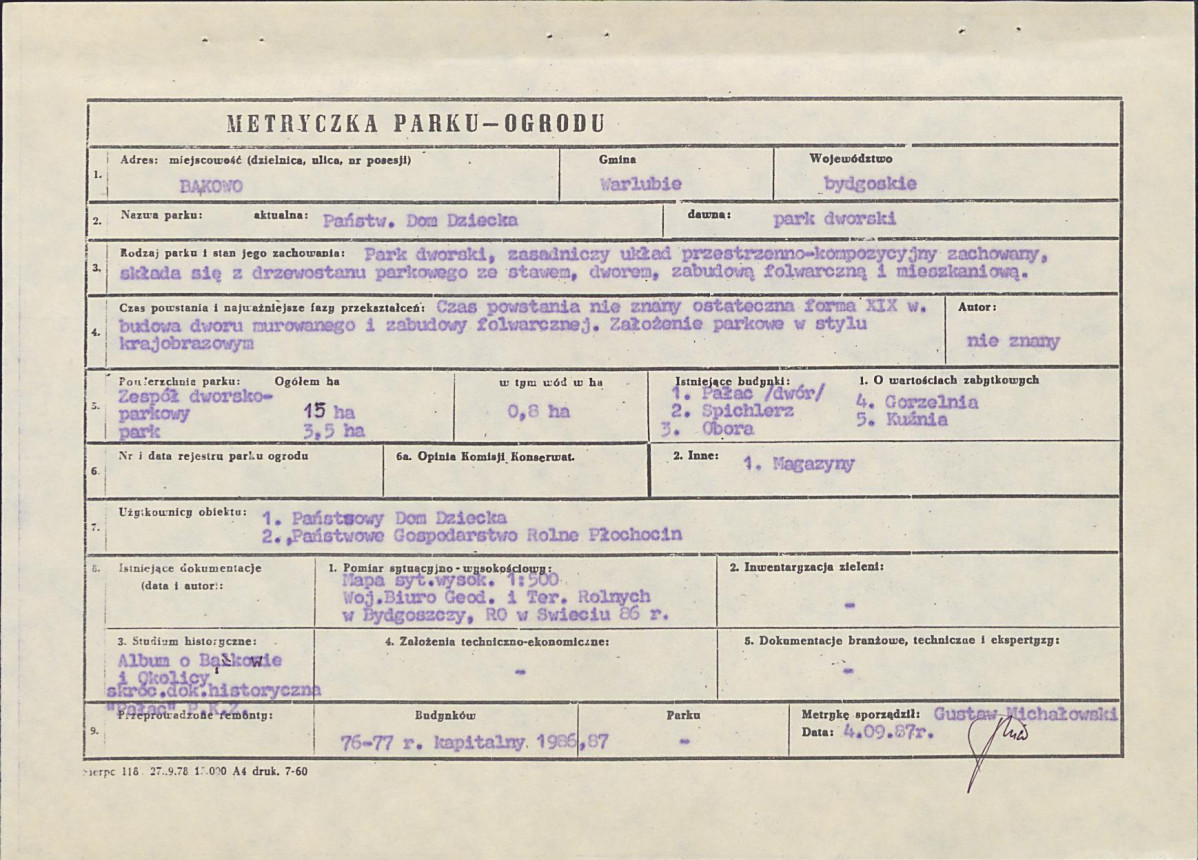 METRYCZKA PARKU-OGRODU
1. Adres: miejscowość (dzielnica, ulica, nr posesji) Gmina Województwo
BĄKOWO Warlubie bydgoskie
2. Nazwa parku: aktualna: Państw. Dom Dziecka dawna: park dworski
3. Rodzaj parku i stan jego zachowania: Park dworski, zasadniczy układ przestrzenno-kompozycyjny zachowany,
składa się z drzewostanu parkowego ze stawem, dworem, zabudową folwarczną i mieszkaniową.
4. Czas powstania i najważniejsze fazy przekształceń: Czas powstania nie znany ostateczna forma XIX w.
budowa dworu murowanego i zabudowy folwarcznej. Założenie parkowe w stylu
krajobrazowym
Autor:
nie znany
5. Powierzchnia parku: Ogółem ha
Zespół dworsko-
parkowy 15 ha
park 3,5 ha
w tym wód w ha
0,8 ha
Istniejące budynki: 1. O wartościach zabytkowych
1. Pałac /dwór/ 4. Gorzelnia
2. Spichlerz 5. Kuźnia
3. Obora
6. Nr i data rejestru parku ogrodu
6a. Opinia Komisji Konserwat.
2. Inne: 1. Magazyny
7. Użytkownicy obiektu: 1. Państsowy Dom Dziecka
2. Państwowe Gospodarstwo Rolne Płochocin
8. Istniejące dokumentacje
(data i autor):
1. Pomiar sytuacyjno-wysokościowy:
Mapa syt.wysok. 1:500
Woj.Biuro Geod. i Ter. Rolnych
w Bydgoszczy, RO w Swieciu 86 r.
2. Inwentaryzacja zieleni:
-
3. Studium historyczne:
Album o Bąkowie
i Okolicy
skróc.dok.historyczna
"Pałac" P.K.Z.
4. Założenia techniczno-ekonomiczne:
-
5. Dokumentacje branżowe, techniczne i ekspertyzy:
-
9. Przeprowadzone remonty:
Budynków
76-77 r. kapitalny. 1986,87
Parku
-
Metrykę sporządził: Gustaw Michałowski
Data: 4.09.87r.
118 27.9.78 A4 druk. 7-60